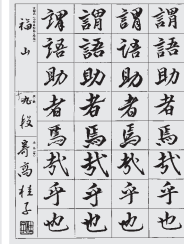 謂語助者馬哉乎也
謂語助者馬哉乎也
謂語助者馬哉乎也
謂語助者馬哉乎也
福山 九段 寿高 桂子